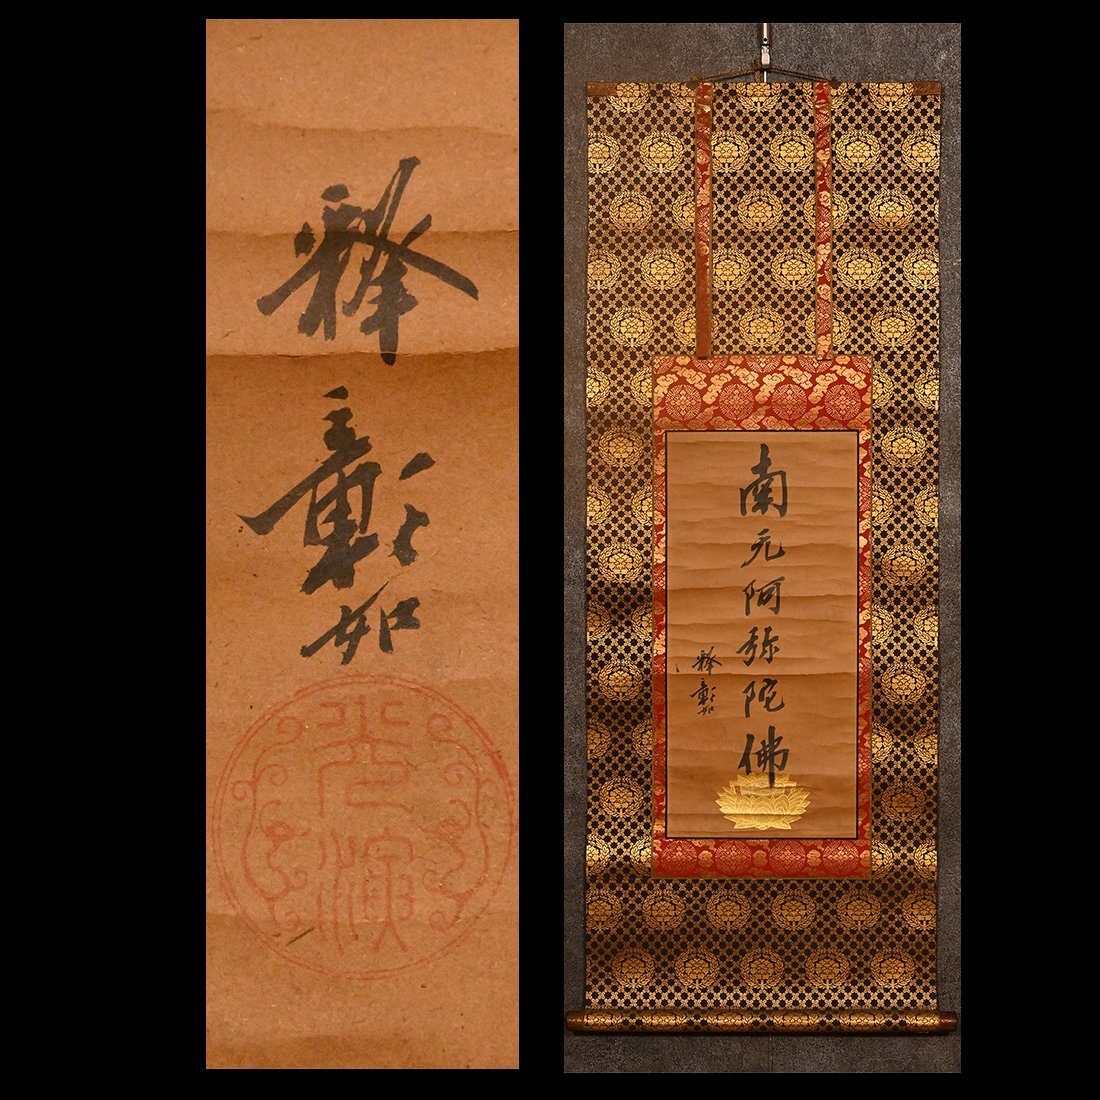 南无阿弥陀佛
釋彰如
釋彰如
光演